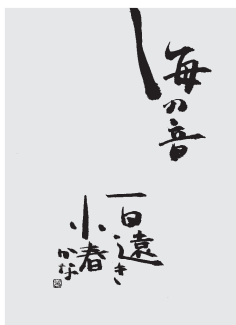 海の音
一日遠き
小春
かな